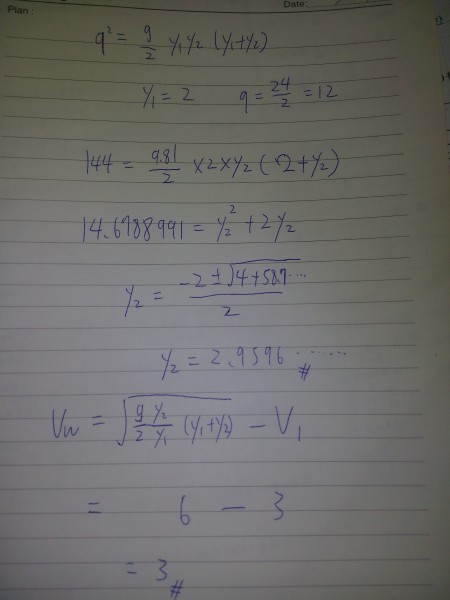 Plan :
Date:
q² = g/2 y₁y₂ (y₁+y₂)
y₁ = 2 q = 24/2 = 12
144 = 9.81/2 ×2×y₂ (2+y₂)
14.6788991 = y₂² + 2y₂
y₂ = (-2 ± √(4+58.7...))/2
y₂ = 2.9596 ......#
Vw = √(g/2 y₂/y₁ (y₁+y₂)) - V₁
= 6 - 3
= 3#